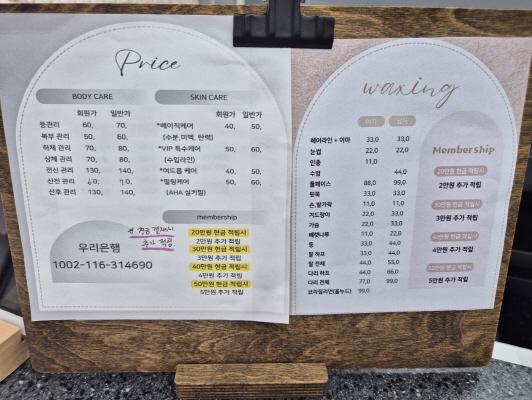 Price
BODY CARE
회원가 일반가
등관리 60, 70,
복부 관리 50, 60,
하체 관리 70, 80,
상체 관리 70, 80,
전신 관리 130, 140,
산전 관리 60, 70,
산후 관리 130, 140,
SKIN CARE
회원가 일반가
*베이직케어 40, 50,
(수분,미백, 탄력)
*VIP 특수케어 50, 60,
(수입라인)
*여드름 케어 40, 50,
*필링케어 50, 60,
(AHA 실키필)
membership
20만원 현금 적립시
2만원 추가 적립
30만원 현금 적립시
3만원 추가 적립
40만원 현금 적립시
4만원 추가 적립
50만원 현금 적립시
5만원 추가 적립
현금 결제시
추가 적립
우리은행
1002-116-314690
waxing
여자 남자
헤어라인 + 이마 33,0 33,0
눈썹 22,0 22,0
인중 11,0
수염 44,0
풀페이스 88,0 99,0
뒷목 33,0 33,0
손,발가락 11,0 33,0
겨드랑이 22,0 33,0
가슴 22,0 33,0
배렛나루 11,0 22,0
등 33,0 44,0
팔 하프 33,0 44,0
팔 전체 44,0 55,0
다리 하프 44,0 66,0
다리 전체 77,0 99,0
브라질리언(올누드) 99,0
Membership
20만원 현금 적립시
2만원 추가 적립
30만원 현금 적립시
3만원 추가 적립
40만원 현금 적립시
4만원 추가 적립
50만원 현금 적립시
5만원 추가 적립